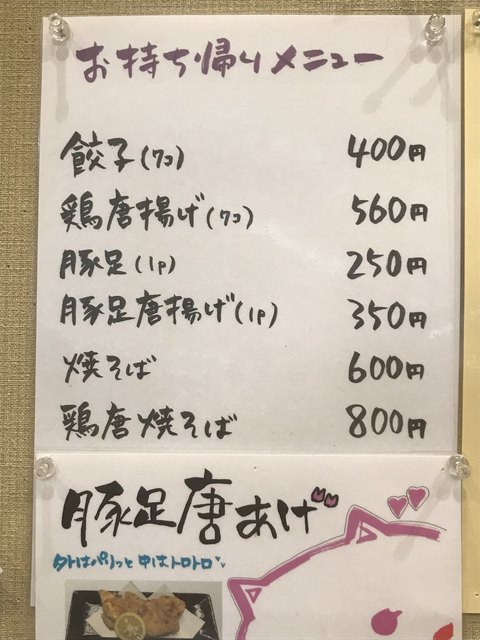 お持ち帰りメニュー
餃子(7コ) 400円
鶏唐揚げ(7コ) 560円
豚足(1P) 250円
豚足唐揚げ(1P) 350円
焼そば 600円
鶏唐焼そば 800円
豚足唐あげ
外はパリっと中はトロトロ